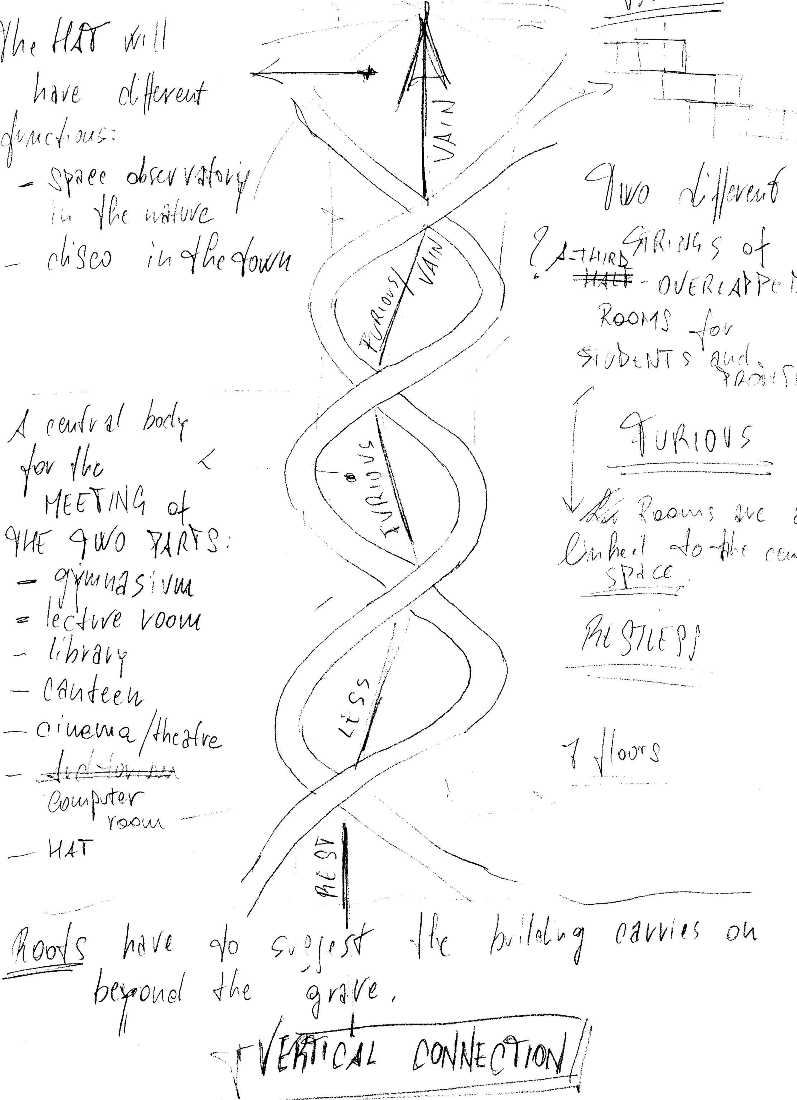 The HAT will
have different
functions:
- space observatory
in the nature
- disco in the town
VAIN
FURIOUS/
VAIN
Two different
STRINGS of
? A-THIRD
HALF - OVERLAPPED
ROOMS for
STUDENTS and
FURIOUS
The Rooms are
linked to the
space
RESTLESS
7 floors
A central body
for the
MEETING of
THE TWO PARTS:
- gymnasium
- lecture room
- library
- canteen
- cinema/theatre
-
computer
room
- HAT
FURIOUS
LESS
REST
Roots have to suggest the building carries on
beyond the grave.
VERTICAL CONNECTION